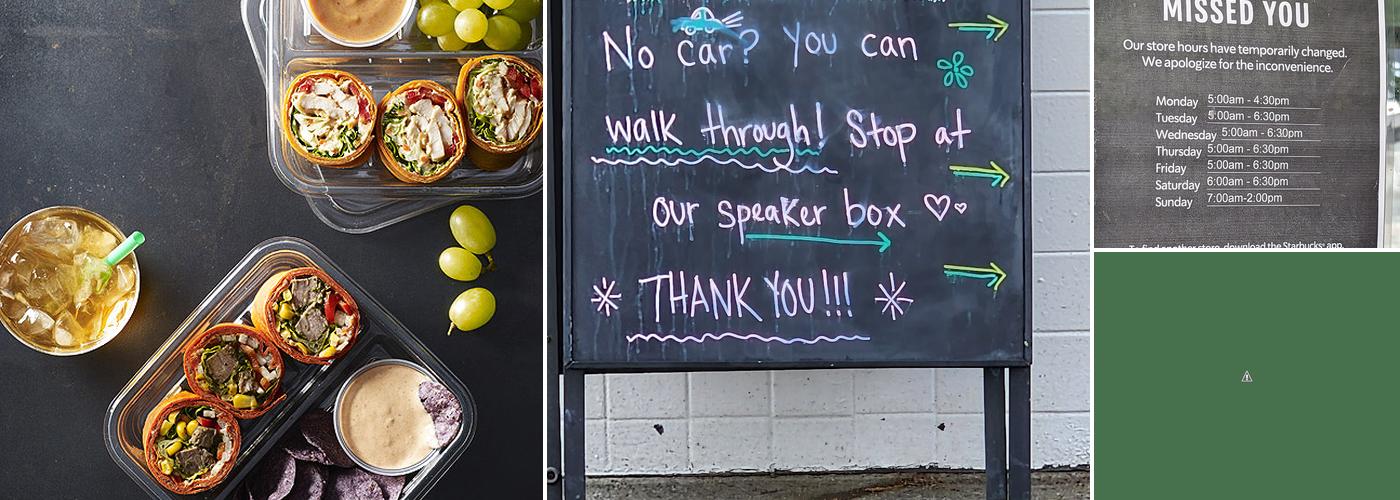 No car? You can
walk through! Stop at
our speaker box
THANK YOU!!!
MISSED YOU
Our store hours have temporarily changed.
We apologize for the inconvenience.
Monday 5:00am - 4:30pm
Tuesday 5:00am - 6:30pm
Wednesday 5:00am - 6:30pm
Thursday 5:00am - 6:30pm
Friday 5:00am - 6:30pm
Saturday 6:00am - 6:30pm
Sunday 7:00am-2:00pm
To find another store, download the Starbucks® app.